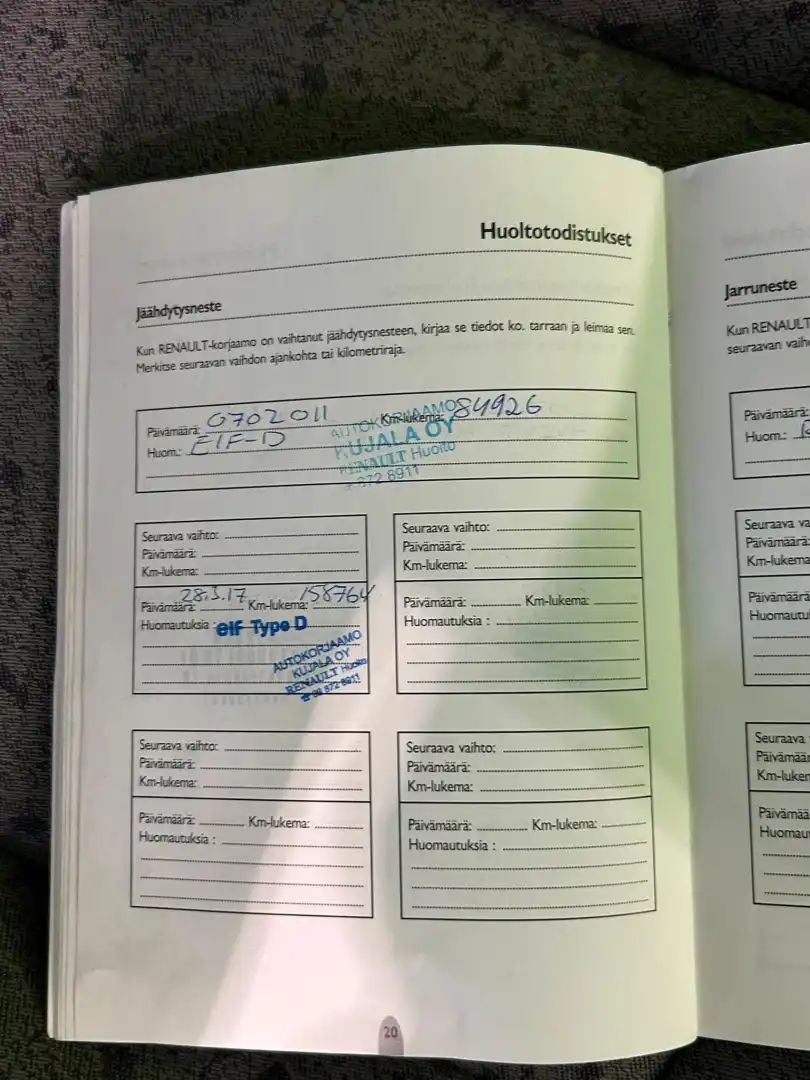 Huoltotodistukset
Jäähdytysneste
Kun RENAULT-korjaamo on vaihtanut jäähdytysnesteen, kirjaa se tiedot ko. tarraan ja leimaa sen.
Merkitse seuraavan vaihdon ajankohta tai kilometriraja.
Päivämäärä: 0702011 Km-lukema: 84926
Huom.: ElF-D
AUTOKORJAAMO
KUJALA OY
RENAULT Huolto
872 8911
Seuraava vaihto:
Päivämäärä:
Km-lukema:
Päivämäärä: 28.3.17 Km-lukema: 158764
Huomautuksia : elf Type D
AUTOKORJAAMO
KUJALA OY
RENAULT Huolto
☎ 09 872 8911
Seuraava vaihto:
Päivämäärä:
Km-lukema:
Päivämäärä: Km-lukema:
Huomautuksia :
Seuraava vaihto:
Päivämäärä:
Km-lukema:
Päivämäärä: Km-lukema:
Huomautuksia :
Seuraava vaihto:
Päivämäärä:
Km-lukema:
Päivämäärä: Km-lukema:
Huomautuksia :
20
Jarruneste
Kun RENAULT
seuraavan vaih
Päivämäärä:
Huom.:
Seuraava va
Päivämäärä:
Km-lukema
Päivämäärä
Huomautu
Seuraava
Päivämäär
Km-luker
Päivämää
Huomau